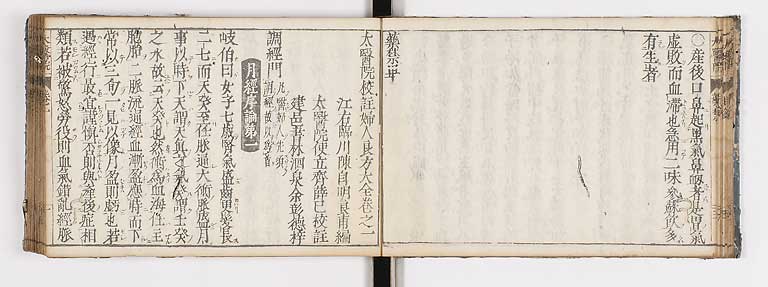 〇産後口鼻起黒氣鼻衂者是胃氣
虚敗而血滯也急用二味參蘇飲多
有生者
藥禁卅
太醫院校註婦人良方大全卷之一
江右臨川陳自明良甫編
太醫院使立齊薛已校註
建邑書林泗泉余彭德梓
調經門
月經序論第一
岐伯曰女子七歳腎氣盛齒更髮長
二七而天癸至任脈通太衝脈盛月
事以時下天謂天真之氣癸謂壬癸
之水故云天癸也然衝為血海任主
胞胎二脈流通經血漸盈應時而下
常以三旬一見以像月盈則虧也若
遇經行最宜謹慎否則與産後症相
類若被驚怒勞役則血氣錯亂經脈